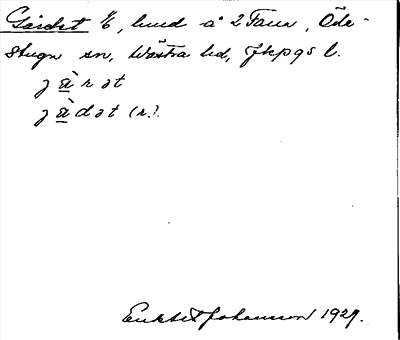 Gärdet ½, lund å 2 Tann, Öde-
stugu sn, Västra hd, Jkpgs l.
jä̀rət
jä̀dət (r.).
Enkhet Johansson 1927.